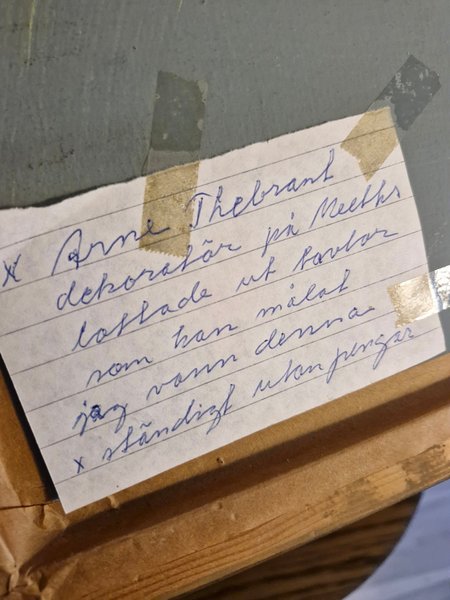 x Arne Thebrant
dekoratör på Meeths
lottade ut tavlor
som han målat
jag vann denna
x ständigt utan pengar